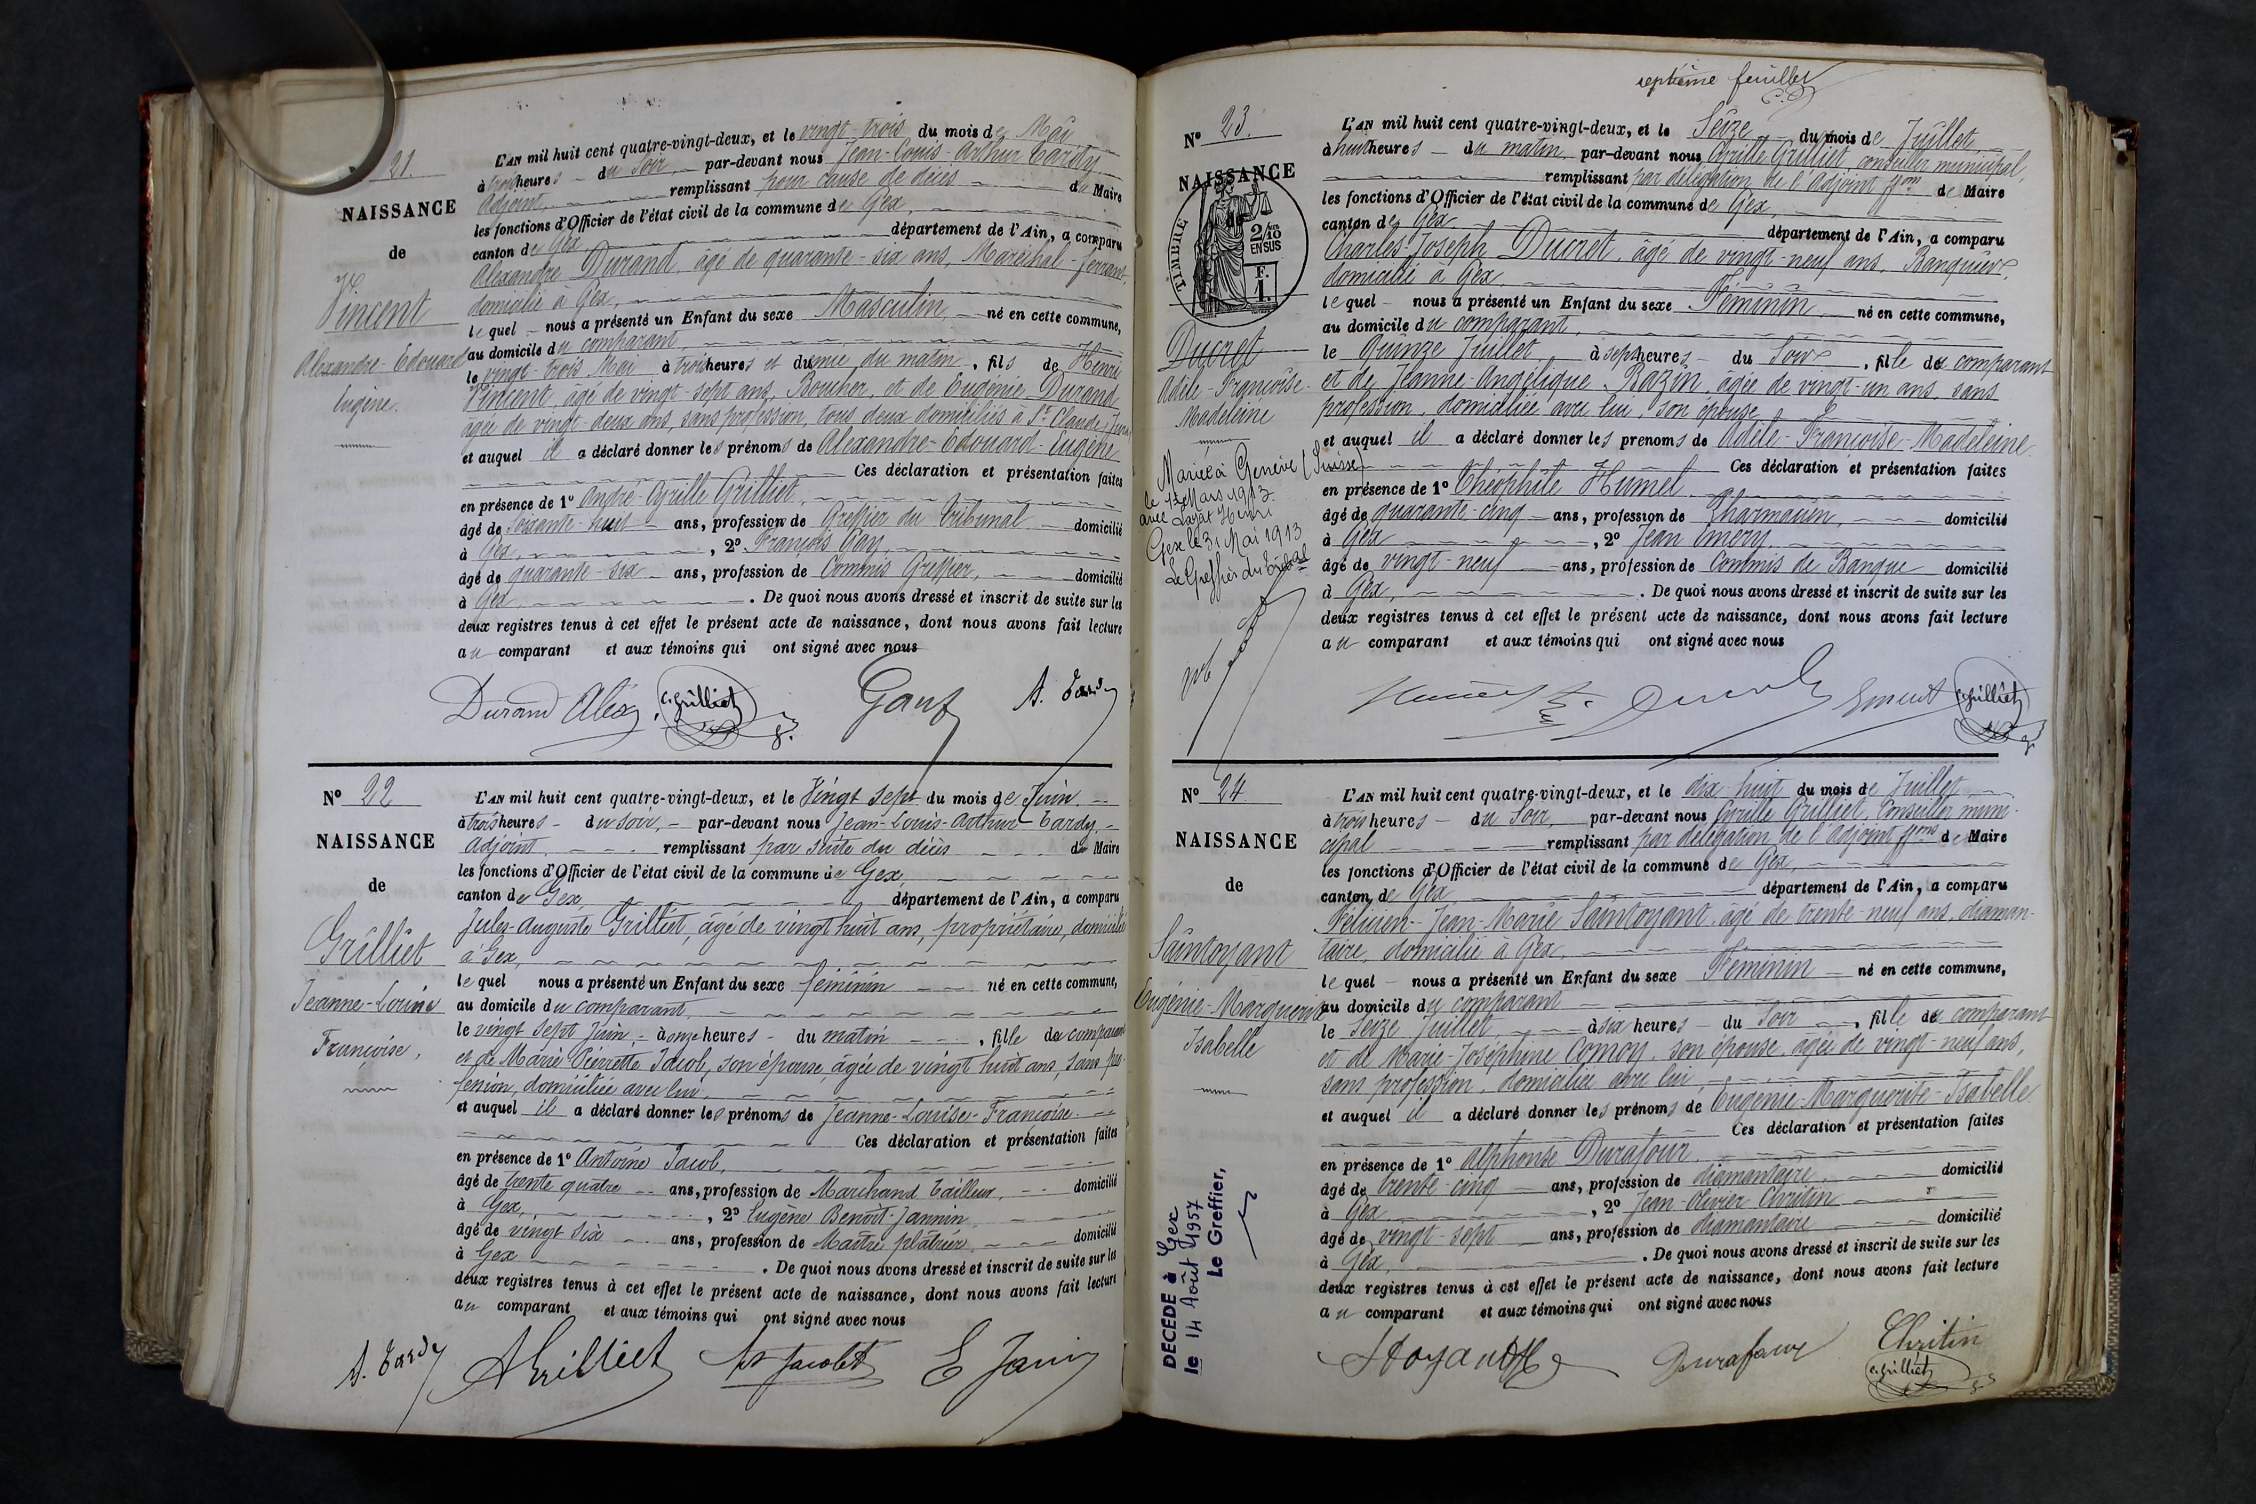 21.
NAISSANCE
de
Vincent
Alexandre-Edouard
Eugène.
L'AN mil huit cent quatre-vingt-deux, et le vingt-trois du mois de Mai
à trois heures du Soir, par-devant nous Jean-Louis-Arthur Tardy,
adjoint, remplissant pour cause de décès du Maire
les fonctions d'Officier de l'état civil de la commune de Gex,
canton de Gex département de l'Ain, a comparu
Alexandre Durand, âgé de quarante-six ans, Maréchal-ferrant,
domicilié à Gex,
lequel nous a présenté un Enfant du sexe Masculin né en cette commune,
au domicile du comparant
le vingt-trois Mai à trois heures et demie du matin, fils de Henri
Vincent, âgé de vingt-sept ans, Boucher, et de Eugénie Durand
âgée de vingt-deux ans, sans profession, tous deux domiciliés à St Claude, Jura
et auquel il a déclaré donner les prénoms de Alexandre-Edouard-Eugène
Ces déclaration et présentation faites
en présence de 1º André-Cyrille Grilliet,
âgé de soixante-huit ans, profession de Greffier du Tribunal domicilié
à Gex, 2º François Gay,
âgé de quarante-six ans, profession de Commis Greffier, domicilié
à Gex. De quoi nous avons dressé et inscrit de suite sur les
deux registres tenus à cet effet le présent acte de naissance, dont nous avons fait lecture
au comparant et aux témoins qui ont signé avec nous
Durand Alex C. Grilliet A. Tardy
Nº 22
NAISSANCE
de
Grilliet
Jeanne-Louise
Françoise,
L'AN mil huit cent quatre-vingt-deux, et le Vingt sept du mois de Juin
à trois heures du soir, par-devant nous Jean-Louis-Arthur Tardy,
adjoint remplissant par suite du décès du Maire
les fonctions d'Officier de l'état civil de la commune de Gex,
canton de Gex, département de l'Ain, a comparu
Jules-Auguste Grilliet, âgé de vingt huit ans, propriétaire, domicilié
à Gex,
lequel nous a présenté un Enfant du sexe féminin né en cette commune,
au domicile du comparant
le vingt sept Juin, à onze heures du matin, fille du comparant
et de Marie Pierrette Jacob, son épouse, âgée de vingt huit ans, sans pro-
fession, domiciliée avec lui,
et auquel il a déclaré donner les prénoms de Jeanne-Louise-Françoise
Ces déclaration et présentation faites
en présence de 1º Antoine Jacob,
âgé de trente quatre ans, profession de Marchand tailleur, domicilié
à Gex, 2º Eugène Benoît-Jannin
âgé de vingt six ans, profession de Maître plâtrier domicilié
à Gex. De quoi nous avons dressé et inscrit de suite sur les
deux registres tenus à cet effet le présent acte de naissance, dont nous avons fait lecture
au comparant et aux témoins qui ont signé avec nous
A. Tardy A Grilliet
septième feuillet
Nº 23.
NAISSANCE
TIMBRE
2/10 EN SUS
F. 1.
Ducret
Adèle-Françoise-
Madeleine
Mariée à Genève (Suisse)
le 12 Mars 1913
avec Henri
Gex le 31 Mai 1913
Le Greffier du Tribunal
L'AN mil huit cent quatre-vingt-deux, et le Seize du mois de Juillet,
à huit heures du matin, par-devant nous Cyrille Grilliet, conseiller municipal,
remplissant par délégation de l'adjoint ffons de Maire
les fonctions d'Officier de l'état civil de la commune de Gex,
canton de Gex département de l'Ain, a comparu
Charles Joseph Ducret, âgé de vingt-neuf ans, Banquier,
domicilié à Gex,
lequel nous a présenté un Enfant du sexe Féminin né en cette commune,
au domicile du comparant,
le Quinze Juillet à sept heures du Soir, fille du comparant
et de Jeanne-Angélique Bazin, âgée de vingt-un ans, sans
profession, domiciliée avec lui, son épouse
et auquel il a déclaré donner les prenoms de Adèle-Françoise-Madeleine
Ces déclaration et présentation faites
en présence de 1º Théophile Humel
âgé de quarante-cinq ans, profession de Pharmacien, domicilié
à Gex, 2º Jean Emery
âgé de vingt-neuf ans, profession de Commis de Banque domicilié
à Gex, De quoi nous avons dressé et inscrit de suite sur les
deux registres tenus à cet effet le présent acte de naissance, dont nous avons fait lecture
au comparant et aux témoins qui ont signé avec nous
C. Grilliet
Nº 24
NAISSANCE
de
Saintoyant
Eugénie-Marguerite
Isabelle
DECEDÉ à Gex
le 14 Août 1957
Le Greffier,
L'AN mil huit cent quatre-vingt-deux, et le dix huit du mois de Juillet,
à trois heures du Soir, par-devant nous Cyrille Grilliet, Conseiller muni-
cipal remplissant par délégation de l'adjoint ffons de Maire
les fonctions d'Officier de l'état civil de la commune de Gex,
canton de Gex département de l'Ain, a comparu
Félicien-Jean-Marie Saintoyant, âgé de trente-neuf ans, diaman-
taire, domicilié à Gex,
lequel nous a présenté un Enfant du sexe Féminin né en cette commune,
au domicile du comparant
le Seize Juillet, à six heures du Soir, fille du comparant
et de Marie-Joséphine Comoy, son épouse, âgée de vingt-neuf ans,
sans profession, domiciliée avec lui,
et auquel il a déclaré donner les prénoms de Eugénie-Marguerite-Isabelle
Ces déclaration et présentation faites
en présence de 1º Alphonse Durafour
âgé de trente-cinq ans, profession de diamantaire, domicilié
à Gex, 2º Jean-Olivier Chritin
âgé de vingt-sept ans, profession de diamantaire domicilié
à Gex, De quoi nous avons dressé et inscrit de suite sur les
deux registres tenus à cet effet le présent acte de naissance, dont nous avons fait lecture
au comparant et aux témoins qui ont signé avec nous
Durafour Chritin
C. Grilliet